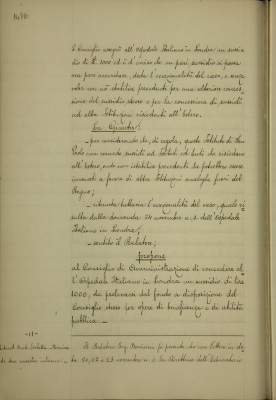 il Consiglio assegnò all'Ospedale Italiano in Londra un sussi
dio di £. 1000 ed è d'avviso che un pari sussidio si possa
ora pure accordare, data l'eccezionalità del caso, e senza
valore con ciò stabilire precedenti per una ulteriore conces_
sione del sussidio stesso o per la concessione di sussidi
ad altre Istituzioni risiedenti all'Estero.
La Giunta:
- pur considerando che, di regola, questo Istituto di San
Paolo non concede sussidi ad Istituti od Enti che risiedono
all'Estero, onde non stabilire precedenti che potrebbero essere
invocati a favore di altre Istituzioni analoghe fuori del
Regno;
- ritenuta tuttavia l'eccezionalità del caso, quale ri
sulta dalla domanda 24 novembre u.s. dell'Ospedale
Italiano in Londra;
- sentito il Relatore;
propone
al Consiglio di Amministrazione di concedere al
l'Ospedale Italiano in Londra un sussidio di lire
1000, da prelevarsi dal fondo a disposizione del
Consiglio stesso per opere di beneficenza e di utilità
pubblica.
-11-
Il Direttore
fa presente che con lettere in da
ta 20, 22 e 23 novembre u.s. la Direttrice dell'Educatorio